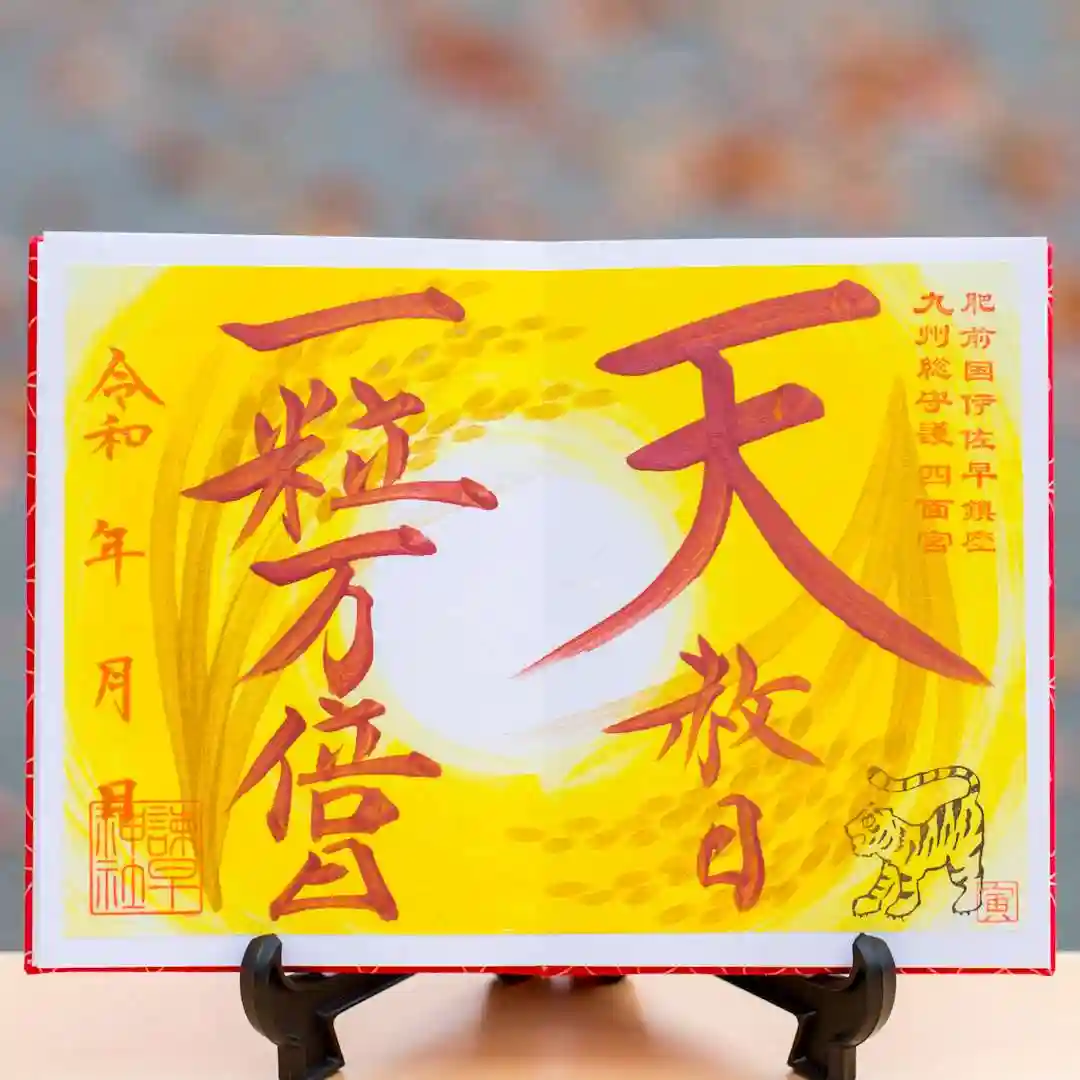 肥前国伊佐早鎮座
九州総守護 四面宮
天赦日
寅
一粒万倍日
令和 年 月 日
諫早神社